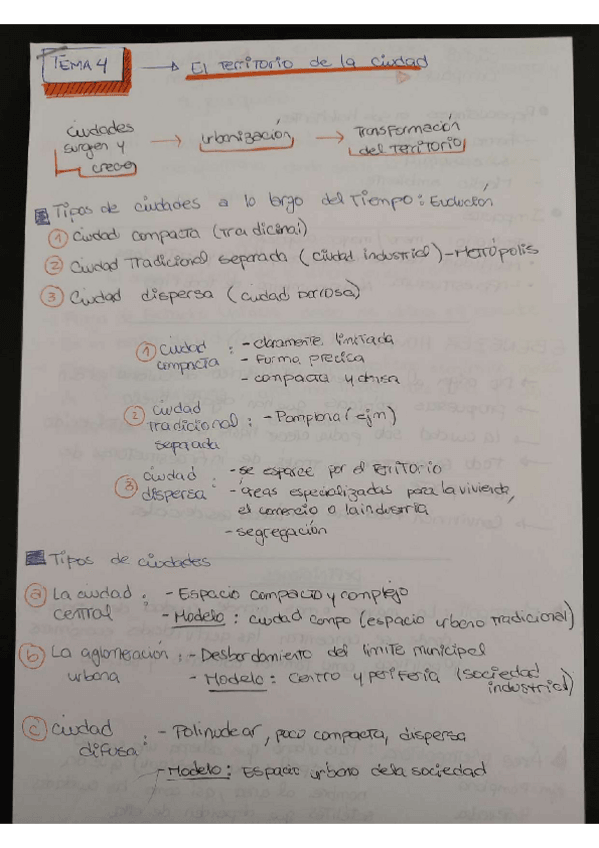 TEMA 4 → El territorio de la ciudad
ciudades surgen y crecen → urbanización → Transformación del territorio
Tipos de ciudades a lo largo del tiempo: Evolución
1 ciudad compacta (tradicinal)
2 ciudad Tradicional separada (ciudad industrial) - Metrópolis
3 ciudad dispersa (ciudad borrosa)
1 ciudad compacta : - claramente limitada
- Forma precisa
- compacta y densa
2 ciudad tradicional separada : - Pamplona (ejm)
3 ciudad dispersa : - se esparce por el territorio
- áreas especializadas para la vivienda,
el comercio o la industria
- segregación
Tipos de ciudades
a La ciudad central : - Espacio compacto y complejo
- Modelo : ciudad campo (espacio urbano tradicional)
b La aglomeración urbana : - Desbordamiento del límite municipal
- Modelo : Centro y periferia (sociedad
industrial)
c ciudad difusa : - Polinuclear, poco compacta, dispersa
- Modelo : Espacio urbano de la sociedad